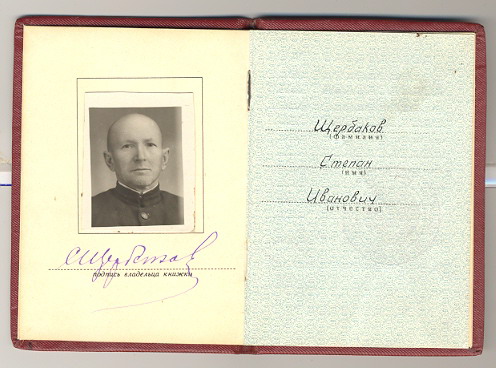 С Щербаков
подпись владельца книжки
Щербаков
(фамилия)
Степан
(имя)
Иванович
(отчество)